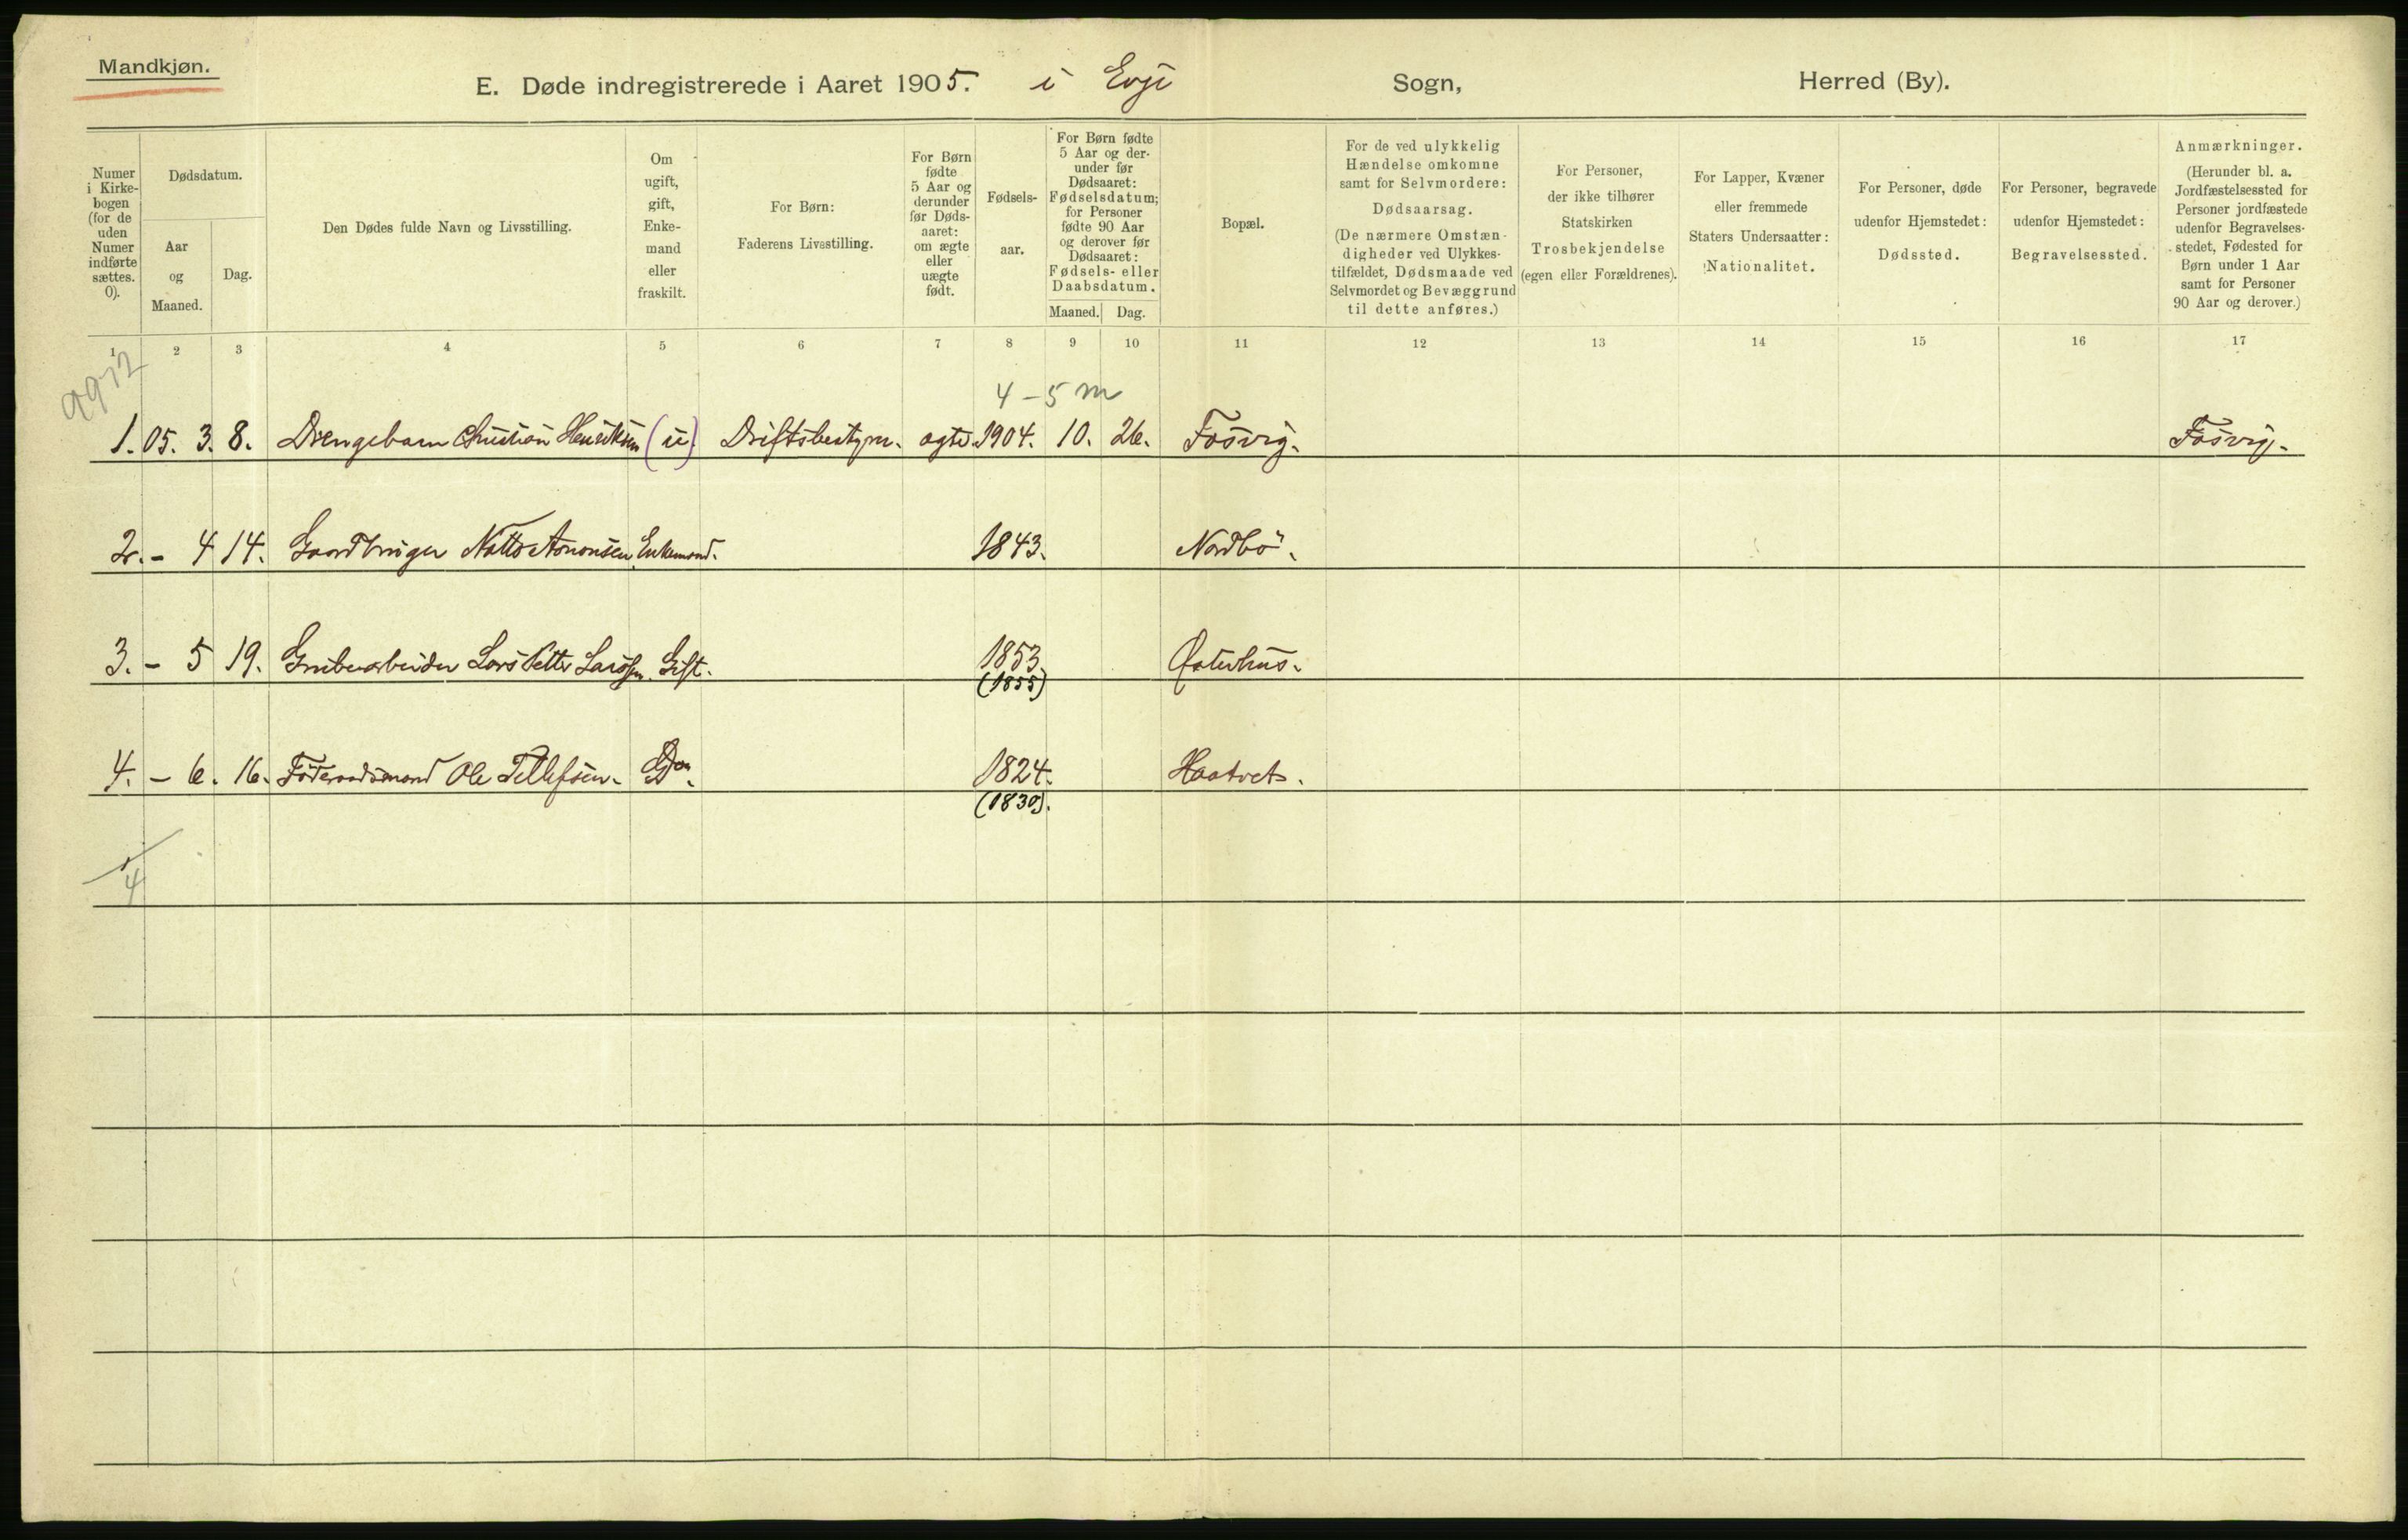 Mandkjøn.
E. Døde indregistrerede i Aaret 1905. i Evje Sogn, Herred (By).
Numer i Kirkebogen (for de uden Numer indførte sættes. 0).
Dødsdatum.
Aar og Maaned.
Dag.
Den Dødes fulde Navn og Livsstilling.
Om ugift, gift, Enkemand eller fraskilt.
For Børn: Faderens Livsstilling.
For Børn fødte 5 Aar og derunder før Dødsaaret: om ægte eller uægte født.
Fødselsaar.
For Børn fødte 5 Aar og derunder før Dødsaaret: Fødselsdatum; for Personer fødte 90 Aar og derover før Dødsaaret: Fødsels- eller Daabsdatum.
Maaned. Dag.
Bopæl.
For de ved ulykkelig Hændelse omkomne samt for Selvmordere: Dødsaarsag. (De nærmere Omstændigheder ved Ulykkestilfældet, Dødsmaade ved Selvmordet og Bevæggrund til dette anføres.)
For Personer, der ikke tilhører Statskirken Trosbekjendelse (egen eller Forældrenes).
For Lapper, Kvæner eller fremmede Staters Undersaatter: Nationalitet.
For Personer, døde udenfor Hjemstedet: Dødssted.
For Personer, begravede udenfor Hjemstedet: Begravelsessted.
Anmærkninger. (Herunder bl. a. Jordfæstelsessted for Personer jordfæstede udenfor Begravelsesstedet, Fødested for Børn under 1 Aar samt for Personer 90 Aar og derover.)
1 2 3 4 5 6 7 8 9 10 11 12 13 14 15 16 17
4-5 m
1. 05. 3. 8. Drengebarn Christian Henriksen (u) Driftsbestyrer. ægte. 1904. 10. 26. Fosvig. Fosvig.
2. - 4 14. Gaardbruger Aanonsen Enkemand. 1843. Nordbö.
3. - 5 19. Grubearbeider Lars Petter Larssen. Gift. 1853. Østerhus.
(1855)
4. - 6. 16. Föderaadsmand Ole Tellefsen. Do. 1824. Haatvet.
(1830).
4